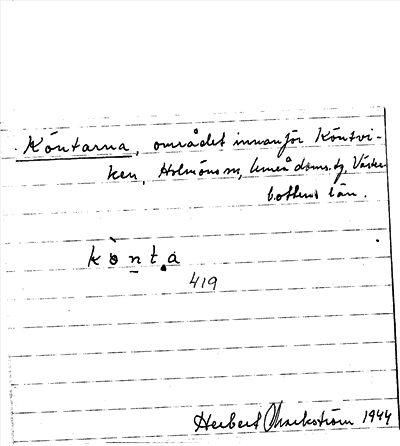 Köntarna, området innanför Köntvi-
ken, Holmöns sn, Umeå doms. tg, Väster-
bottens län.
kònta
419
Herbert Markström 1944